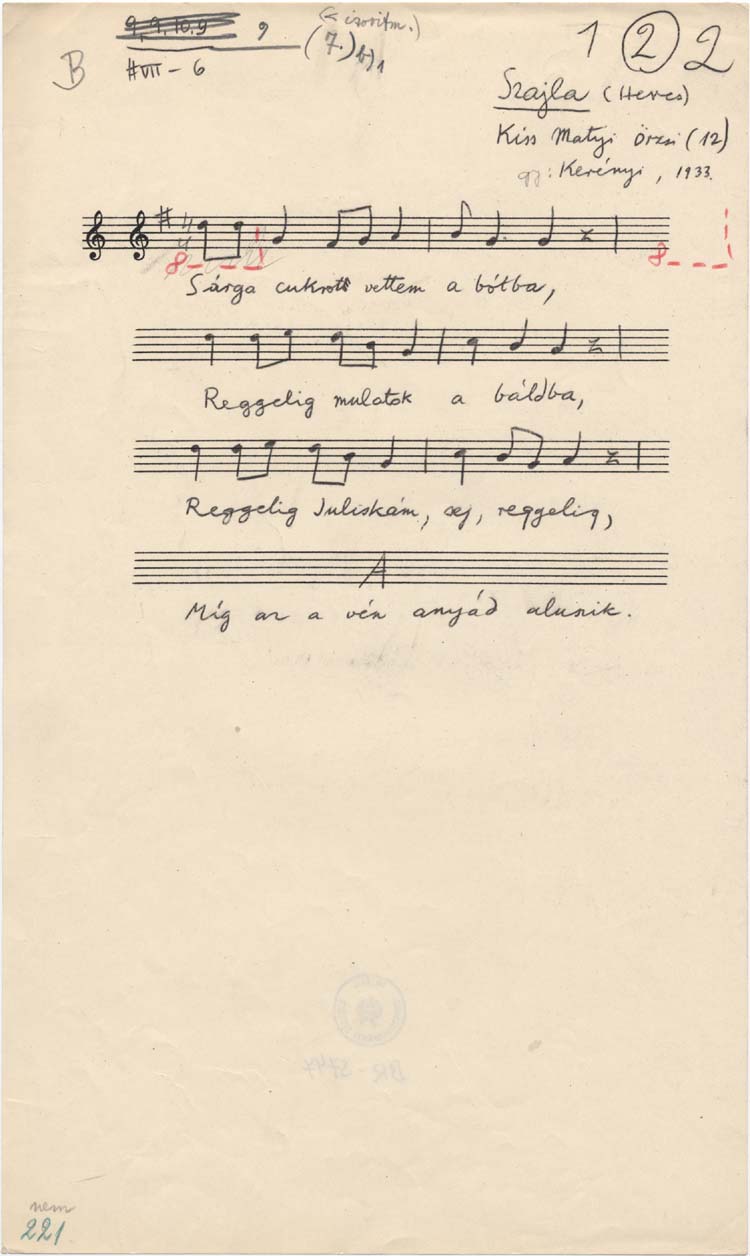 9, 9, 10, 9 9 (< izoritm.)
(7.) b)1
1 2 2
B
#VII - 6
Szajla (Heves)
Kiss Matyi Örzsi (12)
gy: Kerényi, 1933.
4
4
8
8
Sárga cukrott vettem a bótba,
Reggelig mulatok a báldba,
Reggelig Juliskám, sej, reggelig,
A
Míg az a vén anyád alunik.
BR - 3747
nem
221